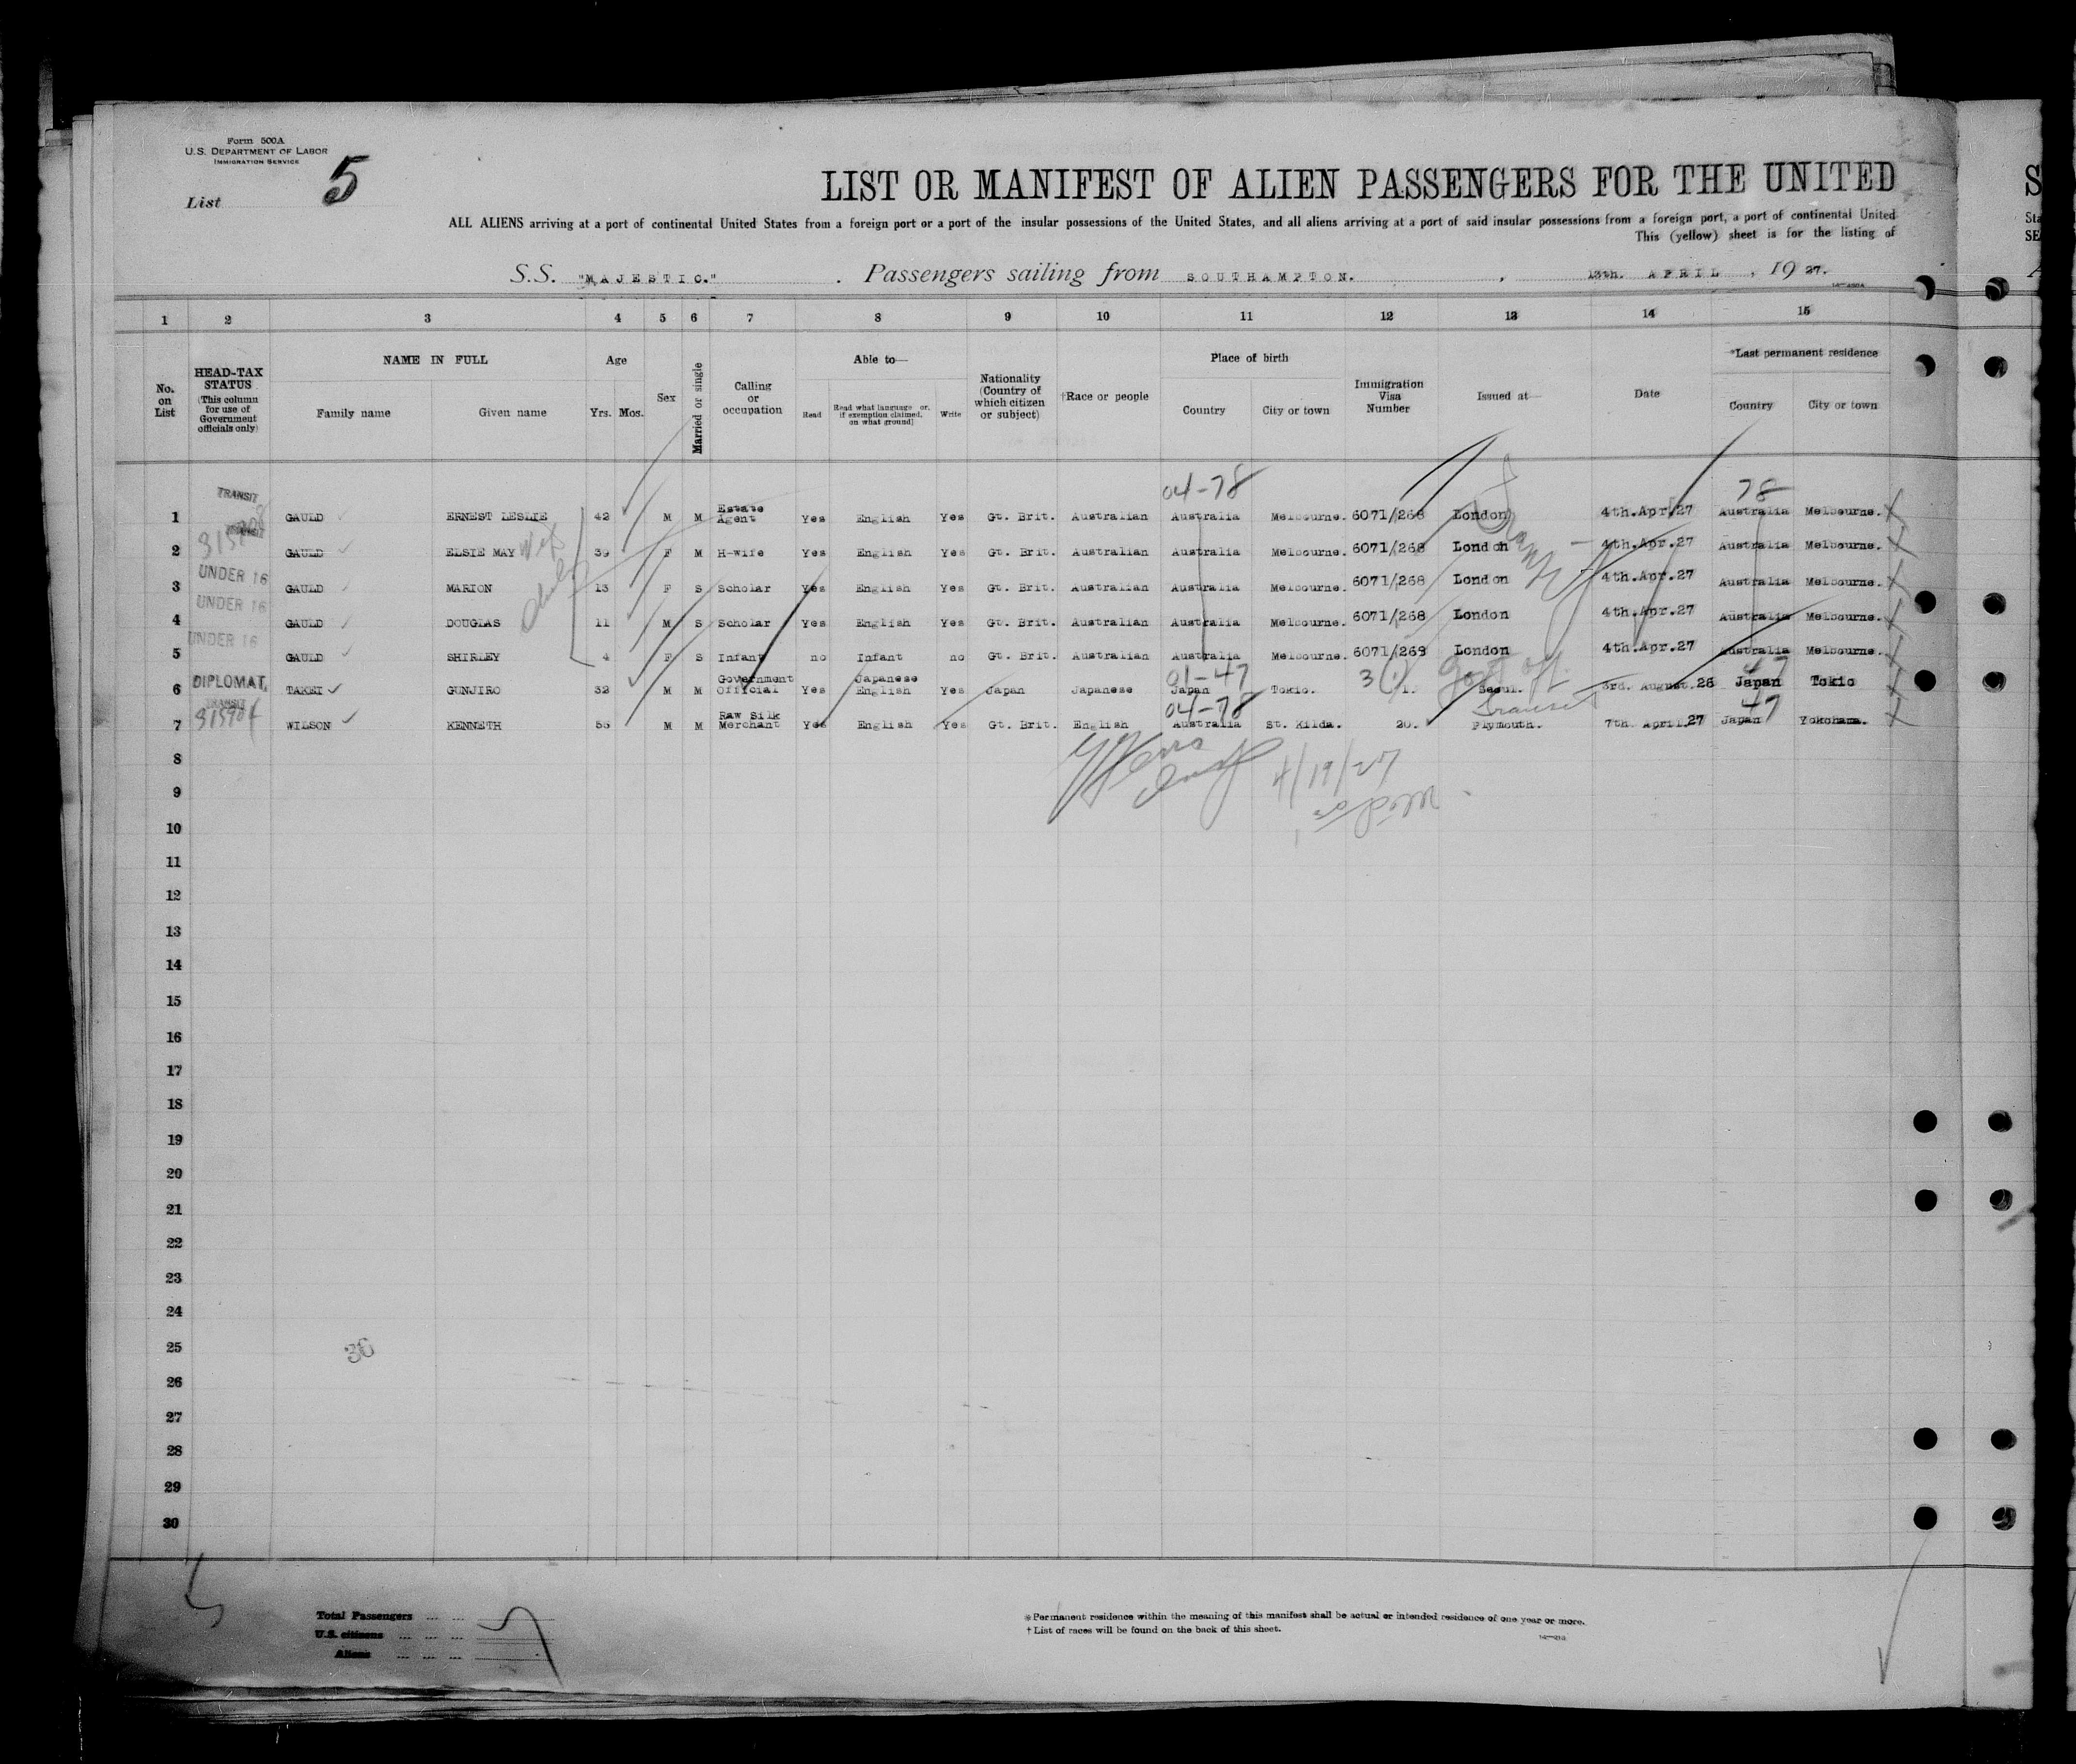 Form 500A
U.S. DEPARTMENT OF LABOR
IMMIGRATION SERVICE
List 5
LIST OR MANIFEST OF ALIEN PASSENGERS FOR THE UNITED
ALL ALIENS arriving at a port of continental United States from a foreign port or a port of the insular possessions of the United States, and all aliens arriving at a port of said insular possessions from a foreign port, a port of continental United
This (yellow) sheet is for the listing of
S.S. "MAJESTIC." . Passengers sailing from SOUTHAMPTON. , 13th. APRIL , 19 27.
1 2 3 4 5 6 7 8 9 10 11 12 13 14 15
No. on List
HEAD-TAX STATUS (This column for use of Government officials only)
NAME IN FULL
Family name Given name
Age
Yrs. Mos.
Sex
Married or single
Calling or occupation
Able to—
Read Read what language or, if exemption claimed, on what ground] Write
Nationality (Country of which citizen or subject)
†Race or people
Place of birth
Country City or town
Immigration Visa Number
Issued at—
Date
*Last permanent residence
Country City or town
TRANSIT 04-78 78
1 GAULD ERNEST LESLIE 42 M M Estate Agent Yes English Yes Gt. Brit. Australian Australia Melbourne. 6071/268 London 4th.Apr.27 Australia Melbourne.
2 GAULD ELSIE MAY wife 39 F M H-wife Yes English Yes Gt. Brit. Australian Australia Melbourne. 6071/268 London 4th.Apr.27 Australia Melbourne.
UNDER 16
3 GAULD MARION 13 F S Scholar Yes English Yes Gt. Brit. Australian Australia Melbourne. 6071/268 London 4th.Apr.27 Australia Melbourne.
UNDER 16
4 GAULD DOUGLAS 11 M S Scholar Yes English Yes Gt. Brit. Australian Australia Melbourne. 6071/268 London 4th.Apr.27 Australia Melbourne.
UNDER 16
5 GAULD SHIRLEY 4 F S Infant no Infant no Gt. Brit. Australian Australia Melbourne. 6071/269 London 4th.Apr.27 Australia Melbourne.
01-47 Gov't off. 47
6 DIPLOMAT, TAKEI GUNJIRO 32 M M Government Official Yes Japanese English Yes Japan Japanese Japan Tokio. 3(1) 1. Seoul. 3rd. August.26 Japan Tokio
TRANSIT 04-78 Transit 47
7 WILSON KENNETH 55 M M Raw Silk Merchant Yes English Yes Gt. Brit. English Australia St. Kilda. 20. Plymouth. 7th April.27 Japan Yokohama.
8
4/19/27
9
10
11
12
13
14
15
16
17
18
19
20
21
22
23
24
25 36
26
27
28
29
30
Total Passengers ... ... 7
U.S. citizens ... ... ...
Aliens ... ... ...
*Permanent residence within the meaning of this manifest shall be actual or intended residence of one year or more.
†List of races will be found on the back of this sheet.